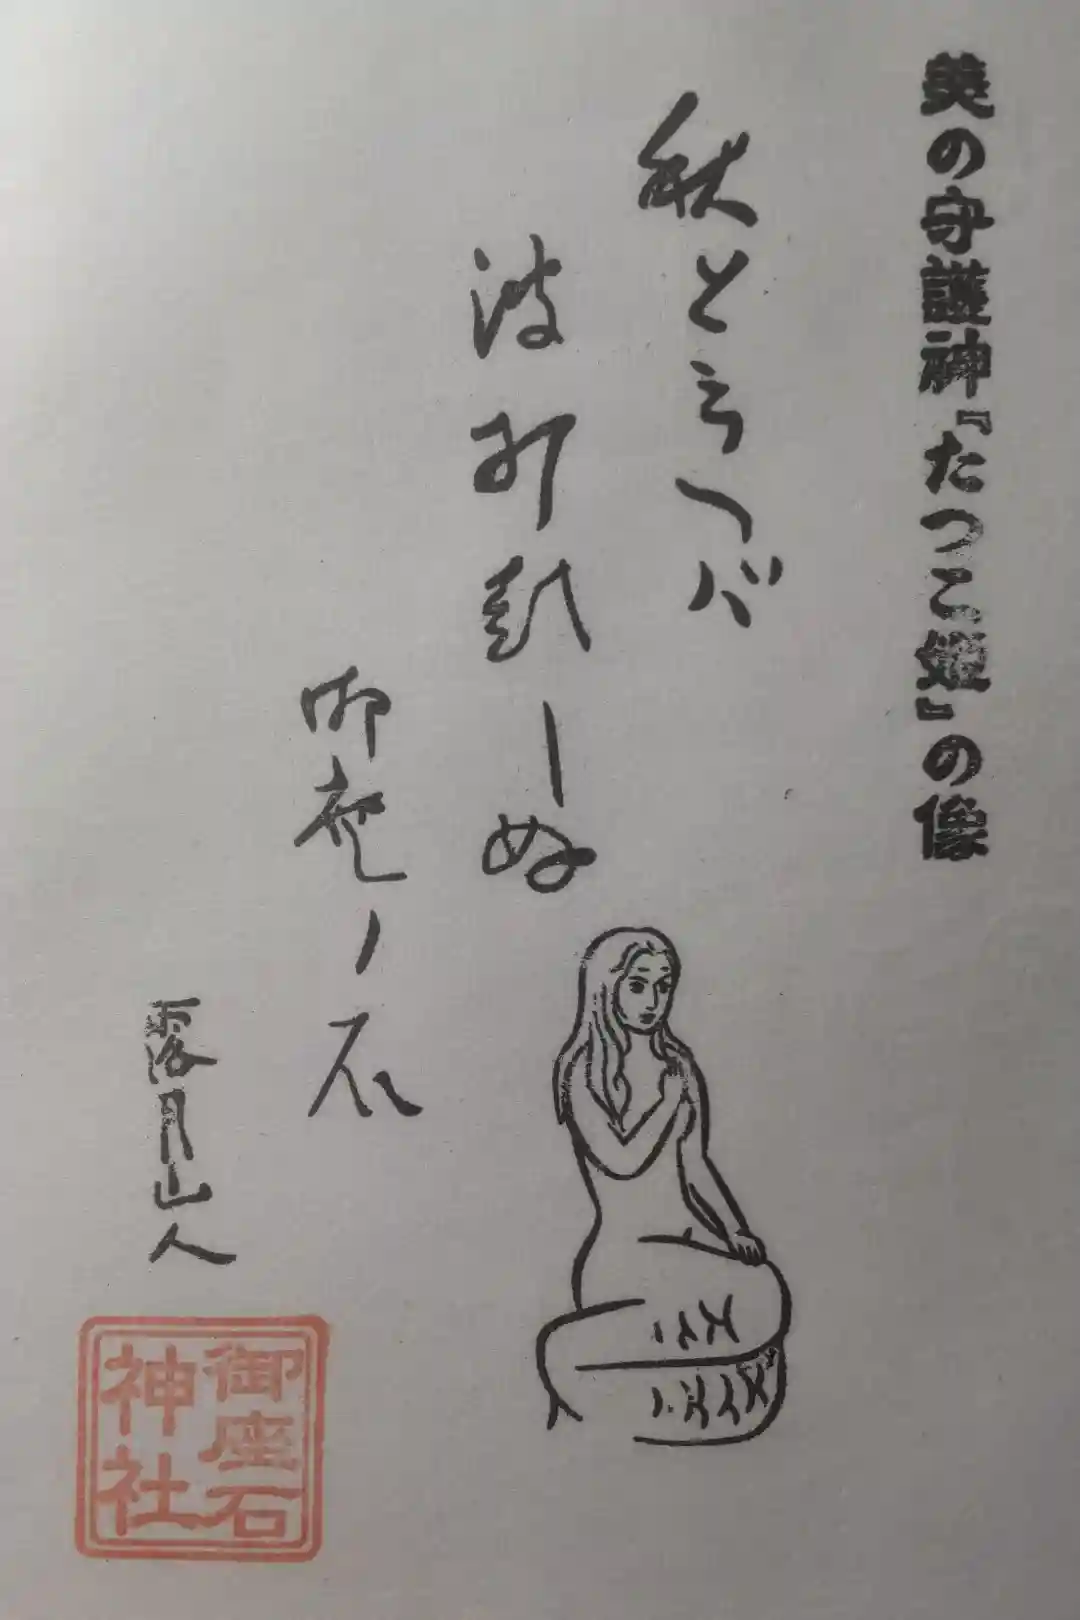 美の守護神『たつこ姫』の像
秋とらへバ
波打課しぬ
御座ノ石
露月山人
御座石
神社